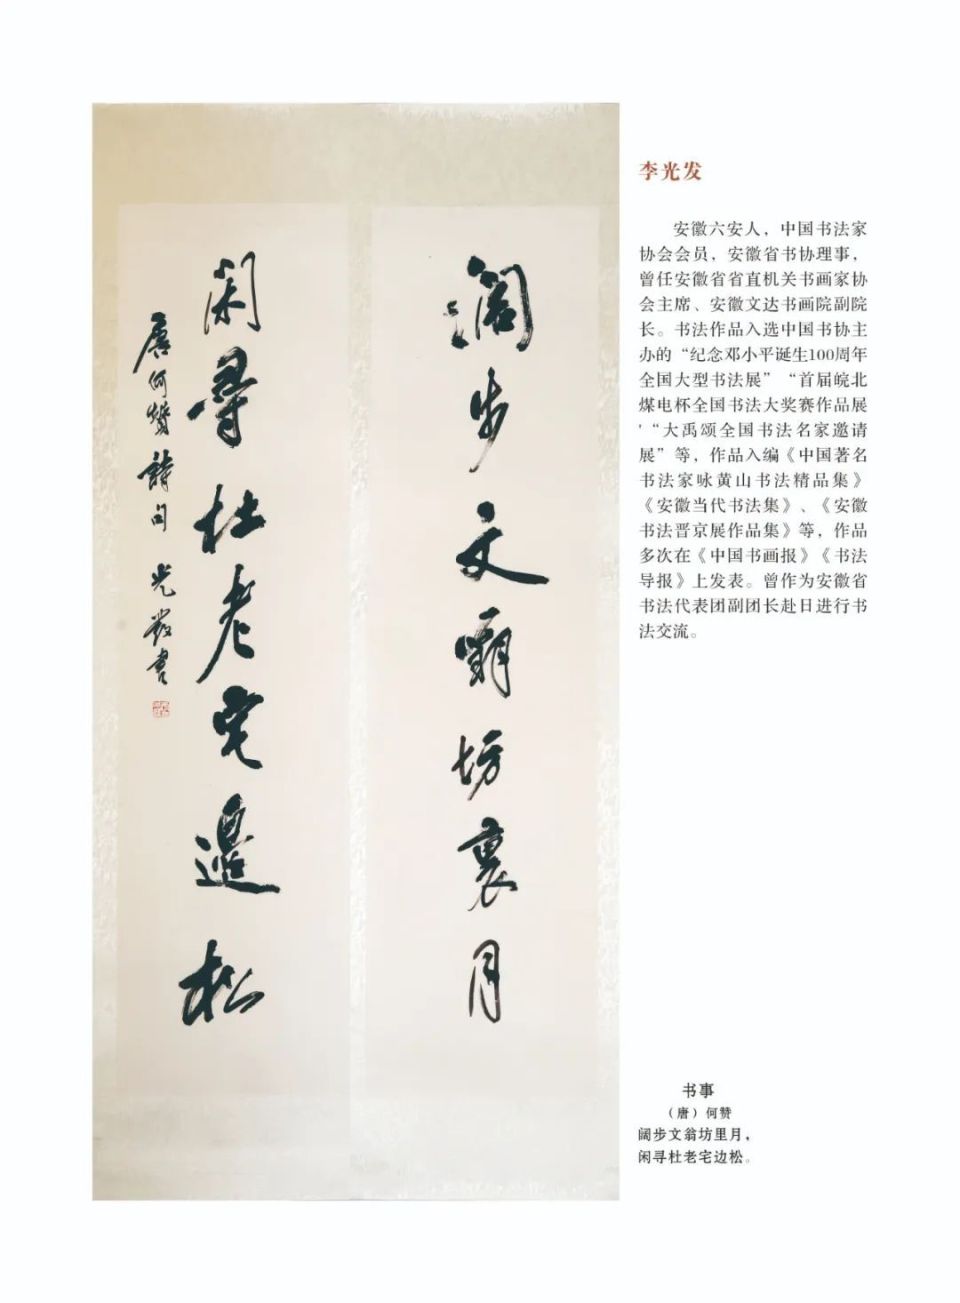 濶步文翁坊裏月
閑尋杜老宅邊松
唐何贊詩句 光發書
李光发
安徽六安人，中国书法家
协会会员，安徽省书协理事，
曾任安徽省省直机关书画家协
会主席、安徽文达书画院副院
长。书法作品入选中国书协主
办的“纪念邓小平诞生100周年
全国大型书法展”“首届皖北
煤电杯全国书法大奖赛作品展
'“大禹颂全国书法名家邀请
展”等，作品入编《中国著名
书法家咏黄山书法精品集》
《安徽当代书法集》、《安徽
书法晋京展作品集》等，作品
多次在《中国书画报》《书法
导报》上发表。曾作为安徽省
书法代表团副团长赴日进行书
法交流。
书事
（唐）何赞
阔步文翁坊里月，
闲寻杜老宅边松。